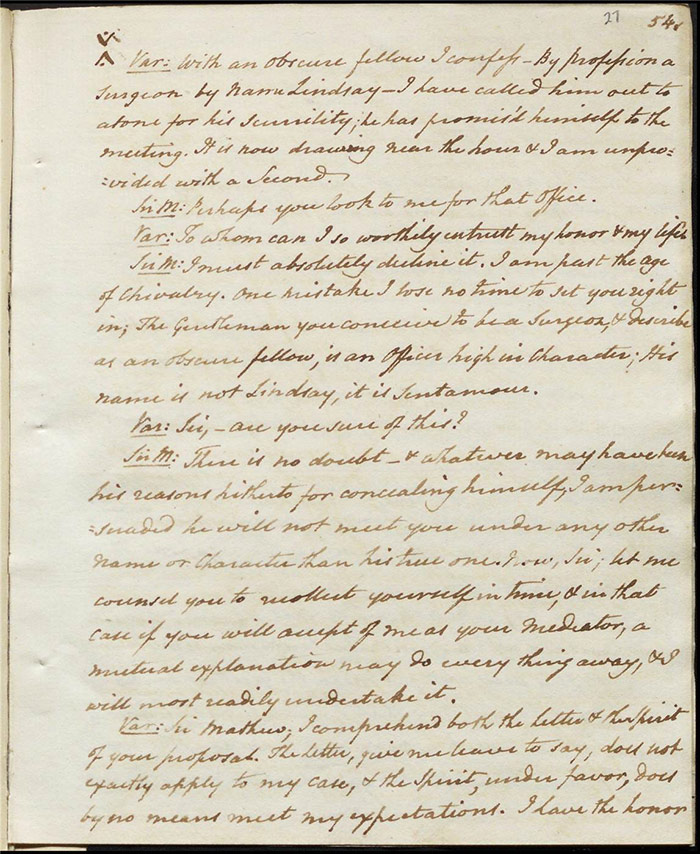 27 54.
Var: With an obscure fellow I confess – By Profession a
Surgeon by name Lindsay – I have called him out to
atone for his scurrility; he has promis'd himself to the
meeting. It is now drawing near the hour & I am unpro=
=vided with a Second.
Sir M: Perhaps you look to me for that Office.
Var: To whom can I so worthily entrust my honor & my life?
Sir M: I must absolutely decline it. I am past the age
of Chivalry. One mistake I lose no time to set you right
in; The Gentleman you conceive to be a Surgeon, & describe
as an obscure fellow, is an Officer high in Character; His
name is not Lindsay, it is Sentamour.
Var: Sir, – are you sure of this?
Sir M: There is no doubt – & whatever may have been
his reasons hitherto for concealing himself, I am per=
=suaded he will not meet you under any other
name or Character than his true one. Now, Sir, let me
counsel you to recollect yourself in time, & in that
case if you will accept of me as your Mediator, a
mutual explanation may do every thing away, & I
will most readily undertake it.
Var: Sir Mathew, I comprehend both the letter & the Spirit
of your proposal. The letter, give me leave to say, does not
exactly apply to my case, & the Spirit, under favor, does
by no means meet my expectations. I have the honor